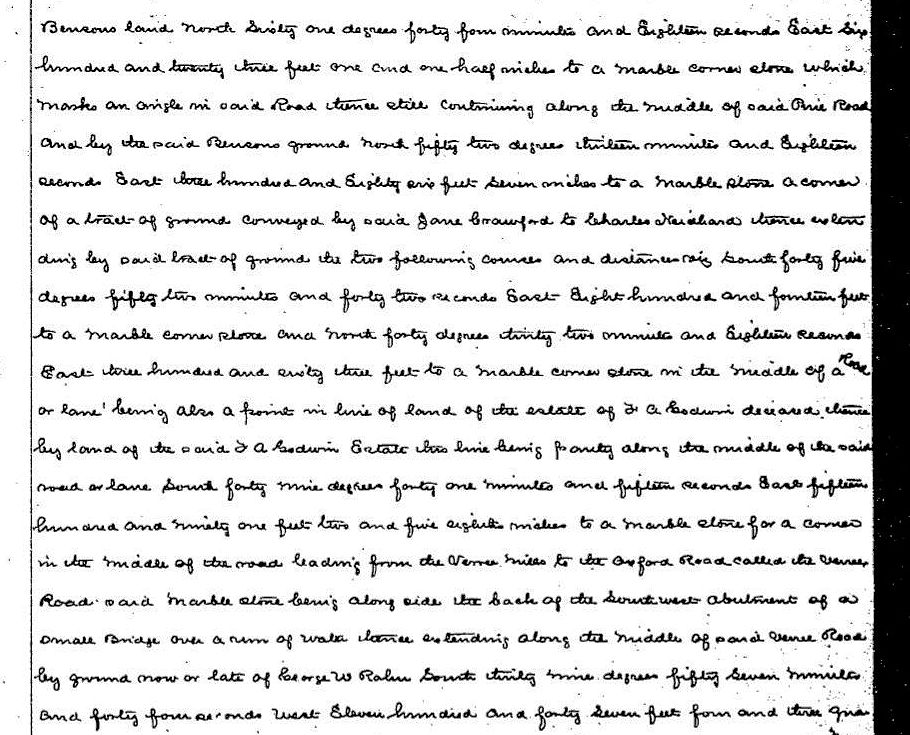 Bensons land North Sixty one degrees forty four minutes and Eighteen seconds East Six
hundred and twenty three feet one and one half inches to a marble corner stone which
marks an angle in said Road thence still continuing along the middle of said Pine Road
and by the said Bensons ground North fifty two degrees thirteen minutes and Eighteen
seconds East three hundred and Eighty six feet seven inches to a marble stone a corner
of a tract of ground conveyed by said Jane Crawford to Charles thence exten
ding by said tract of ground the two following courses and distances viz South forty five
degrees fifty two minutes and forty two seconds East Eight hundred and fourteen feet
to a marble corner stone and North forty degrees thirty two minutes and Eighteen seconds
East three hundred and sixty three feet to a marble corner stone in the middle of a Road
or lane being also a point in line of land of the estate of F A Godwin deceased thence
by land of the said F A Godwin Estate this line being partly along the middle of the said
road or lane South forty nine degrees forty one minutes and fifteen seconds East fifteen
hundred and ninety one feet two and five eighths inches to a marble stone for a corner
in the middle of the road leading from the Verree Mills to the Oxford Road called the Verree
Road said marble stone being along side the back of the Southwest abutment of a
small Bridge over a run of water thence extending along the middle of said Verree Road
by ground now or late of George W Rahn South thirty nine degrees fifty seven minutes
and forty four seconds West Eleven hundred and forty seven feet four and three qua